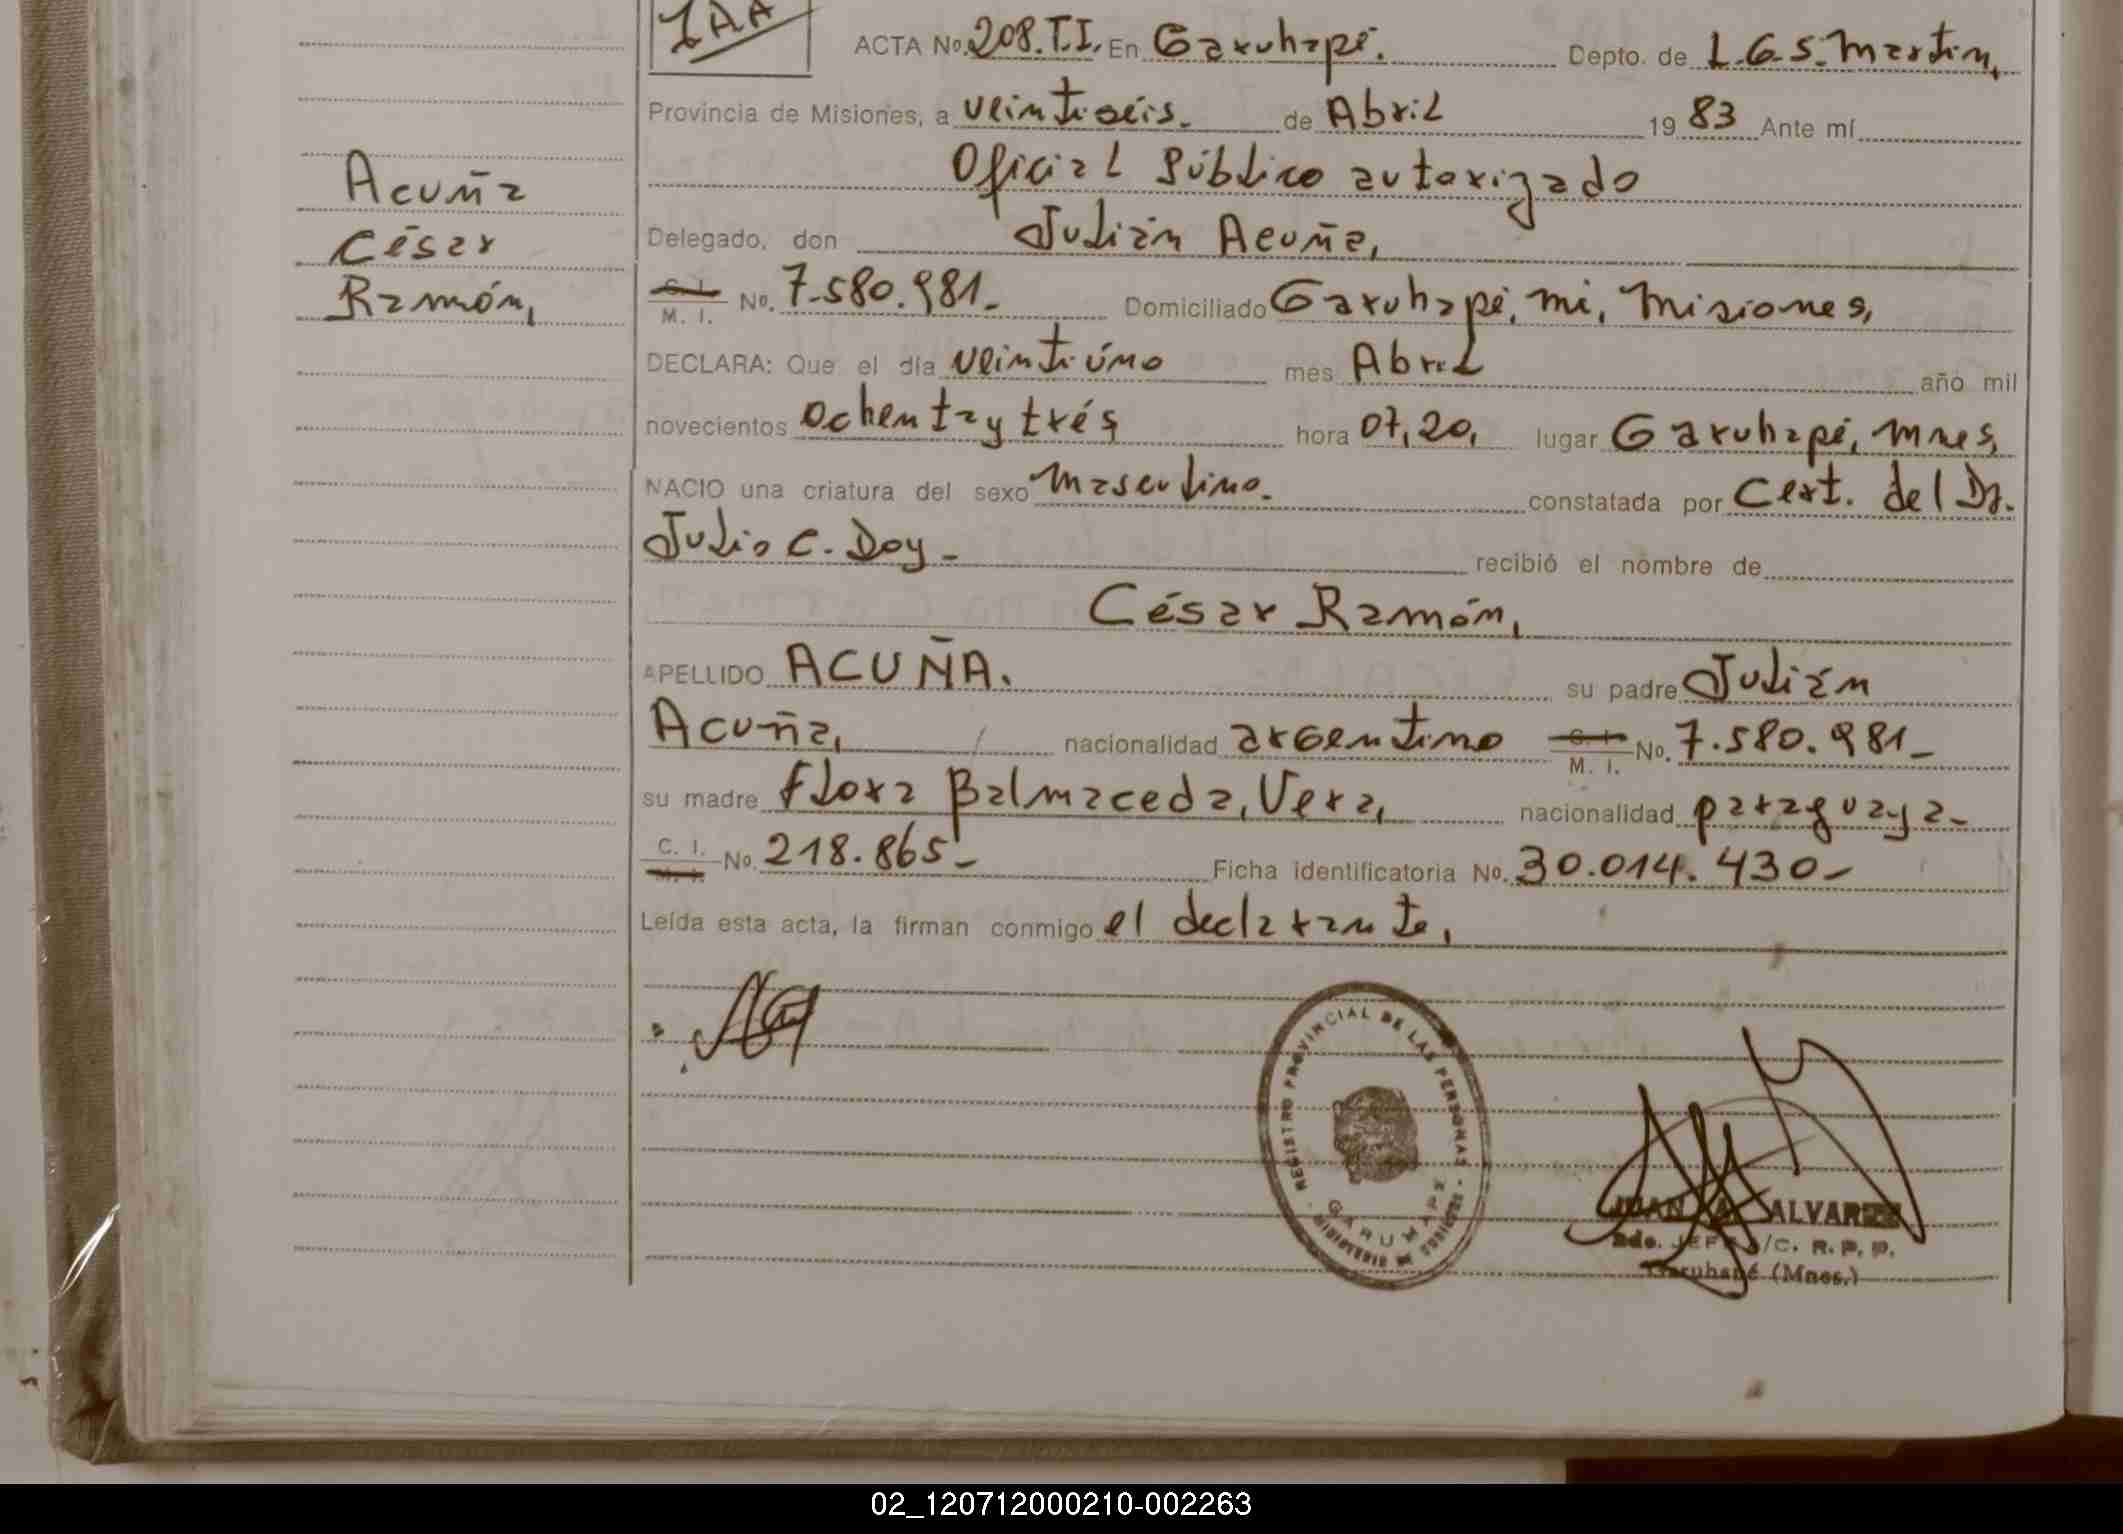 1AA
ACTA No. 208.T.I. En Garuhapé. Depto. de L.G.S. Martin,
Provincia de Misiones, a veintiséis. de Abril 19 83 Ante mí
Oficial Público autorizado
Delegado, don Julián Acuña,
C. I. M. I. No. 7.580.981_ Domiciliado Garuhapé, mi, Misiones,
DECLARA: Que el día veintiúno mes Abril año mil
novecientos ochenta y trés hora 07,20, lugar Garuhapé, Mnes,
NACIO una criatura del sexo masculino. constatada por Cert. del Dr.
Julio C. Doy _ recibió el nombre de
César Ramón,
APELLIDO ACUÑA. su padre Julián
Acuña, nacionalidad argentino C. I. M. I. No. 7.580.981_
su madre Flora Balmaceda, Vera, nacionalidad paraguaya_
C. I. M. I. No. 218.865_ Ficha identificatoria No. 30.014.430_
Leída esta acta, la firman conmigo el declarante,
Acuña
César
Ramón,
REGISTRO PROVINCIAL DE LAS PERSONAS
GARUHAPE
MINISTERIO DE GOBIERNO
JUAN A. ALVAREZ
2do. JEFE A/C. R. P. P.
Garuhapé (Mnes.)
02_120712000210-002263